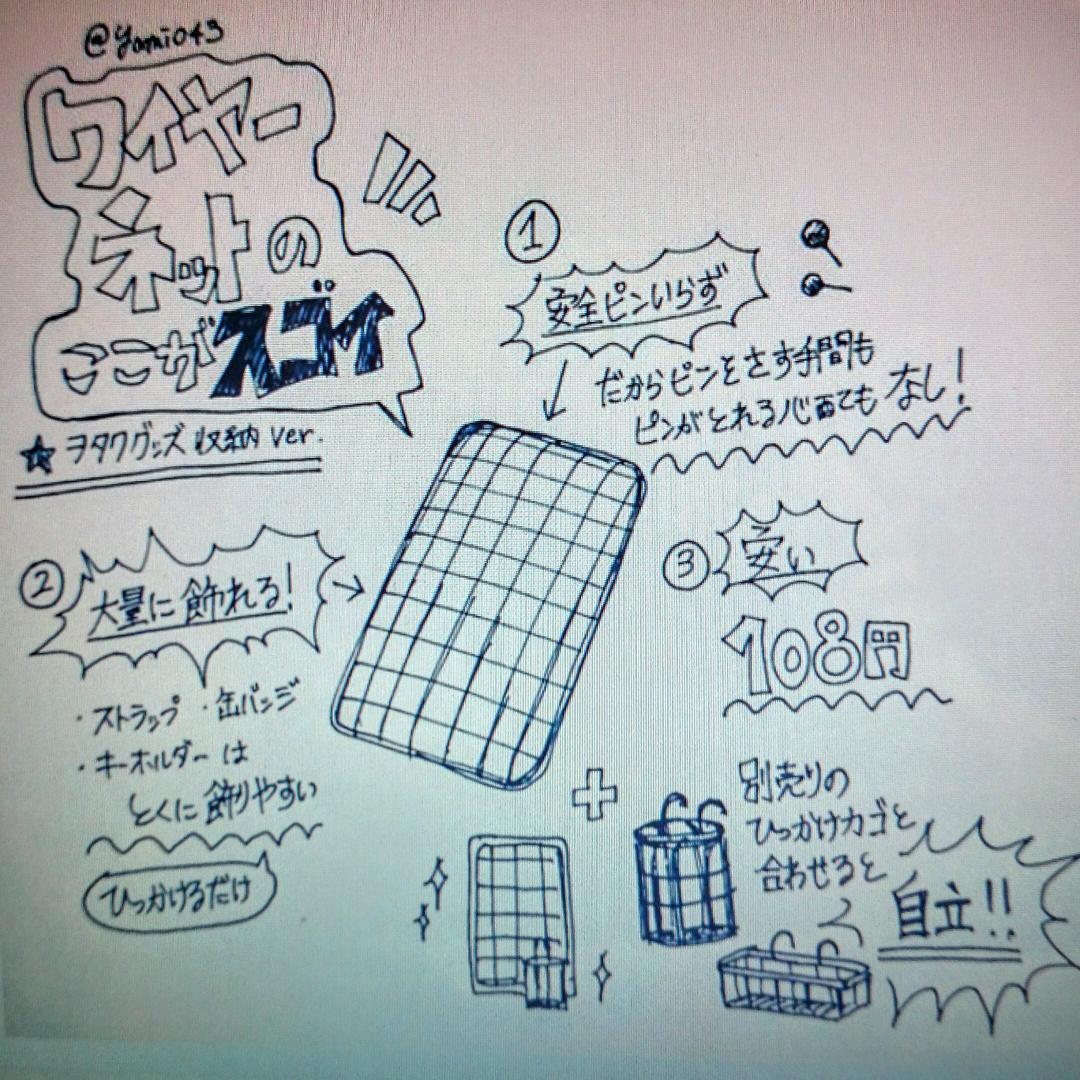 @yomi043
ワイヤー
ネットの
ここがスゴイ
★ヲタクグッズ収納 ver.
①
安全ピンいらず
だからピンをさす手間も
ピンがとれる心配もなし!
②
大量に飾れる!
・ストラップ ・缶バッジ
・キーホルダーは
とくに飾りやすい
ひっかけるだけ
③ 安い
108円
別売りの
ひっかけカゴと
合わせると
自立!!